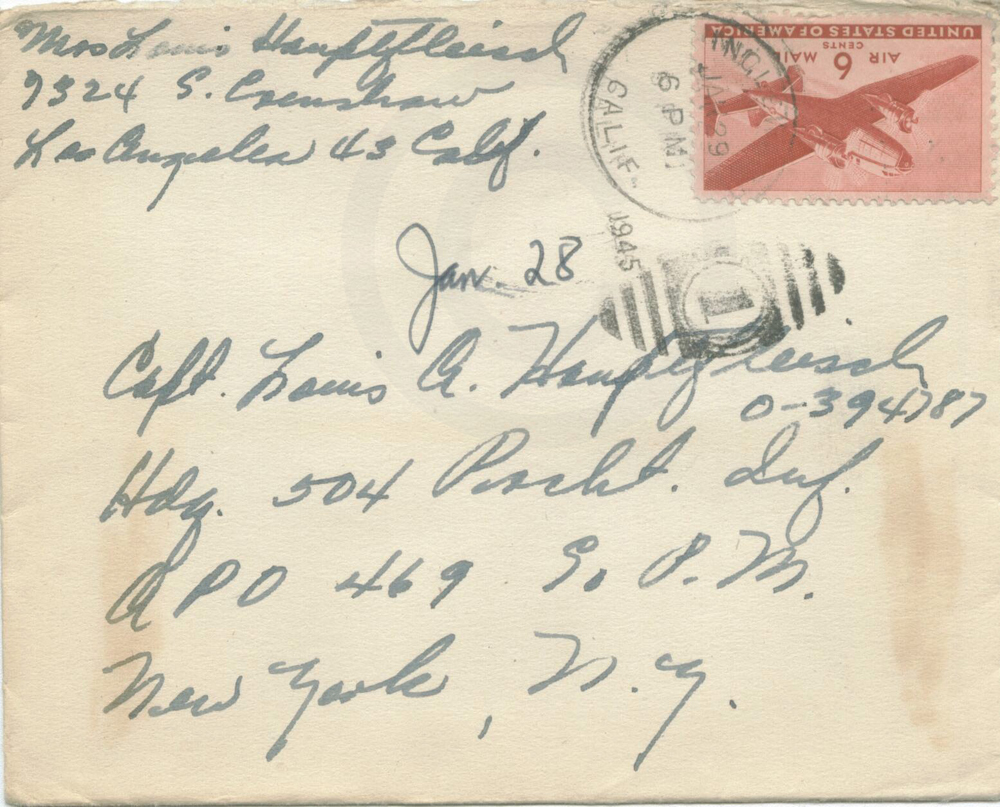 Mrs Louis Hauptfleisch
7324 S. Crenshaw
Los Angeles 43 Calif.
UNITED STATES OF AMERICA
AIR MAIL
6 CENTS
JAN 29
6 PM
CALIF.
1945
Jan. 28
1
Capt. Louis A. Hauptfleisch
O-394787
Hdq. 504 Prcht. Inf.
A P O 469 % P.M.
New York, N.Y.